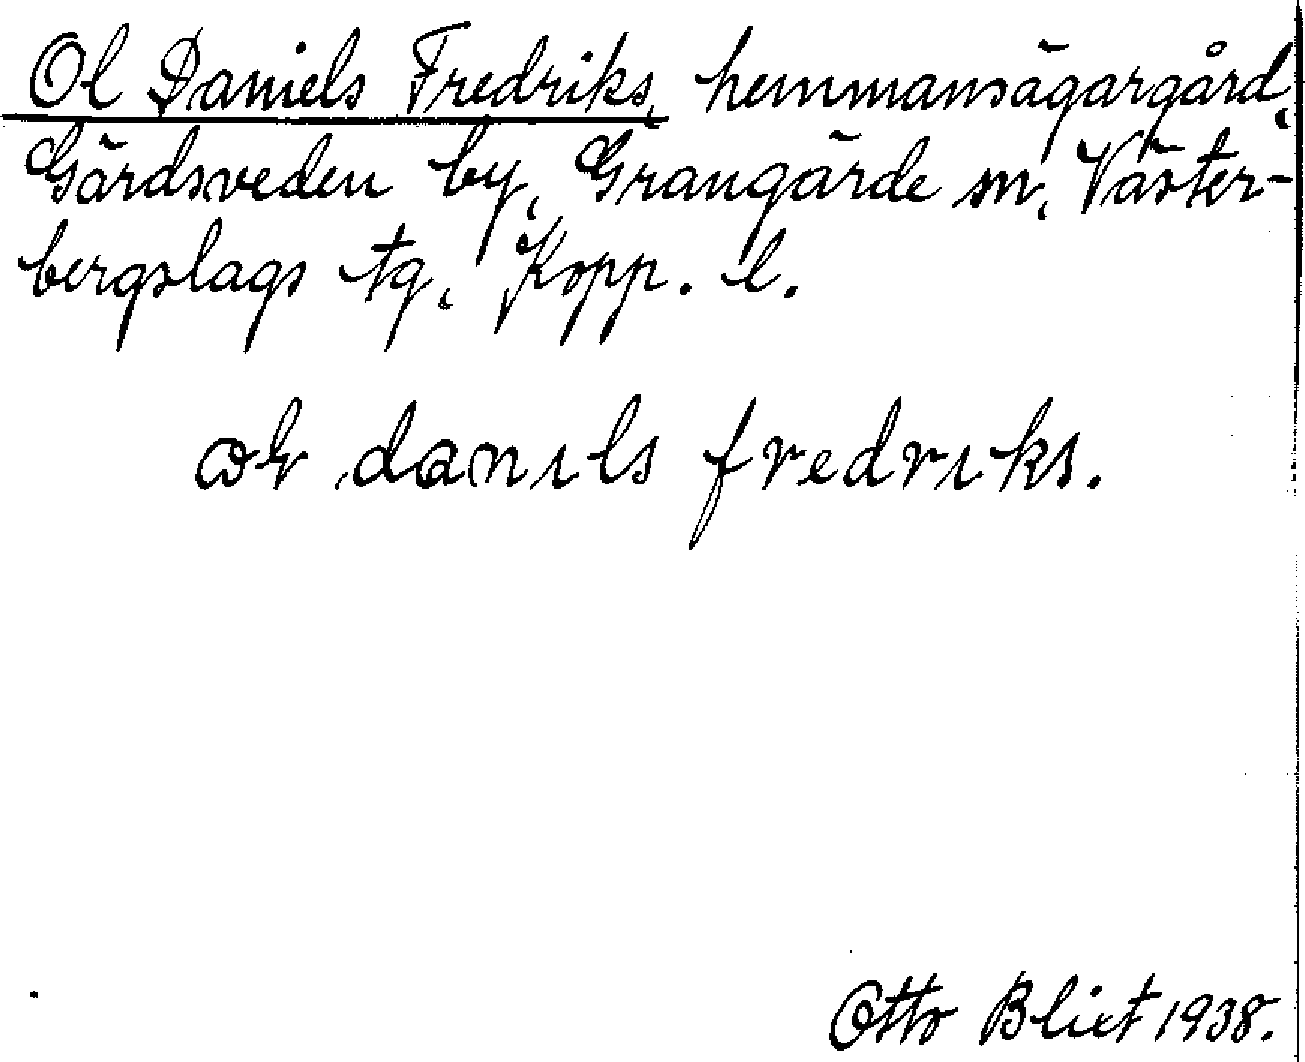 Ol Daniels Fredriks, hemmansägargård,
Gärdsveden by, Grangärde sn, Väster-
bergslags tg, Kopp. l.
danɩls fredrɩks.
Otto Blixt 1938.